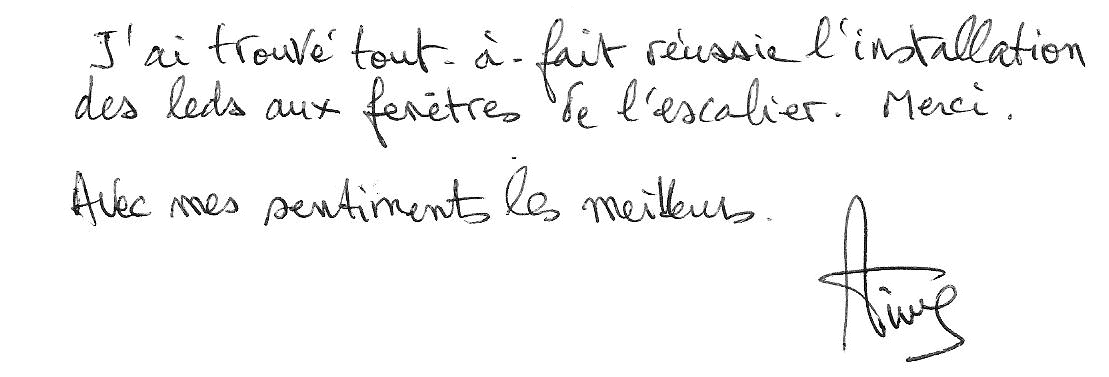 J'ai trouvé tout-à-fait réussie l'installation
des leds aux fenêtres de l'escalier. Merci.
Avec mes sentiments les meilleurs.